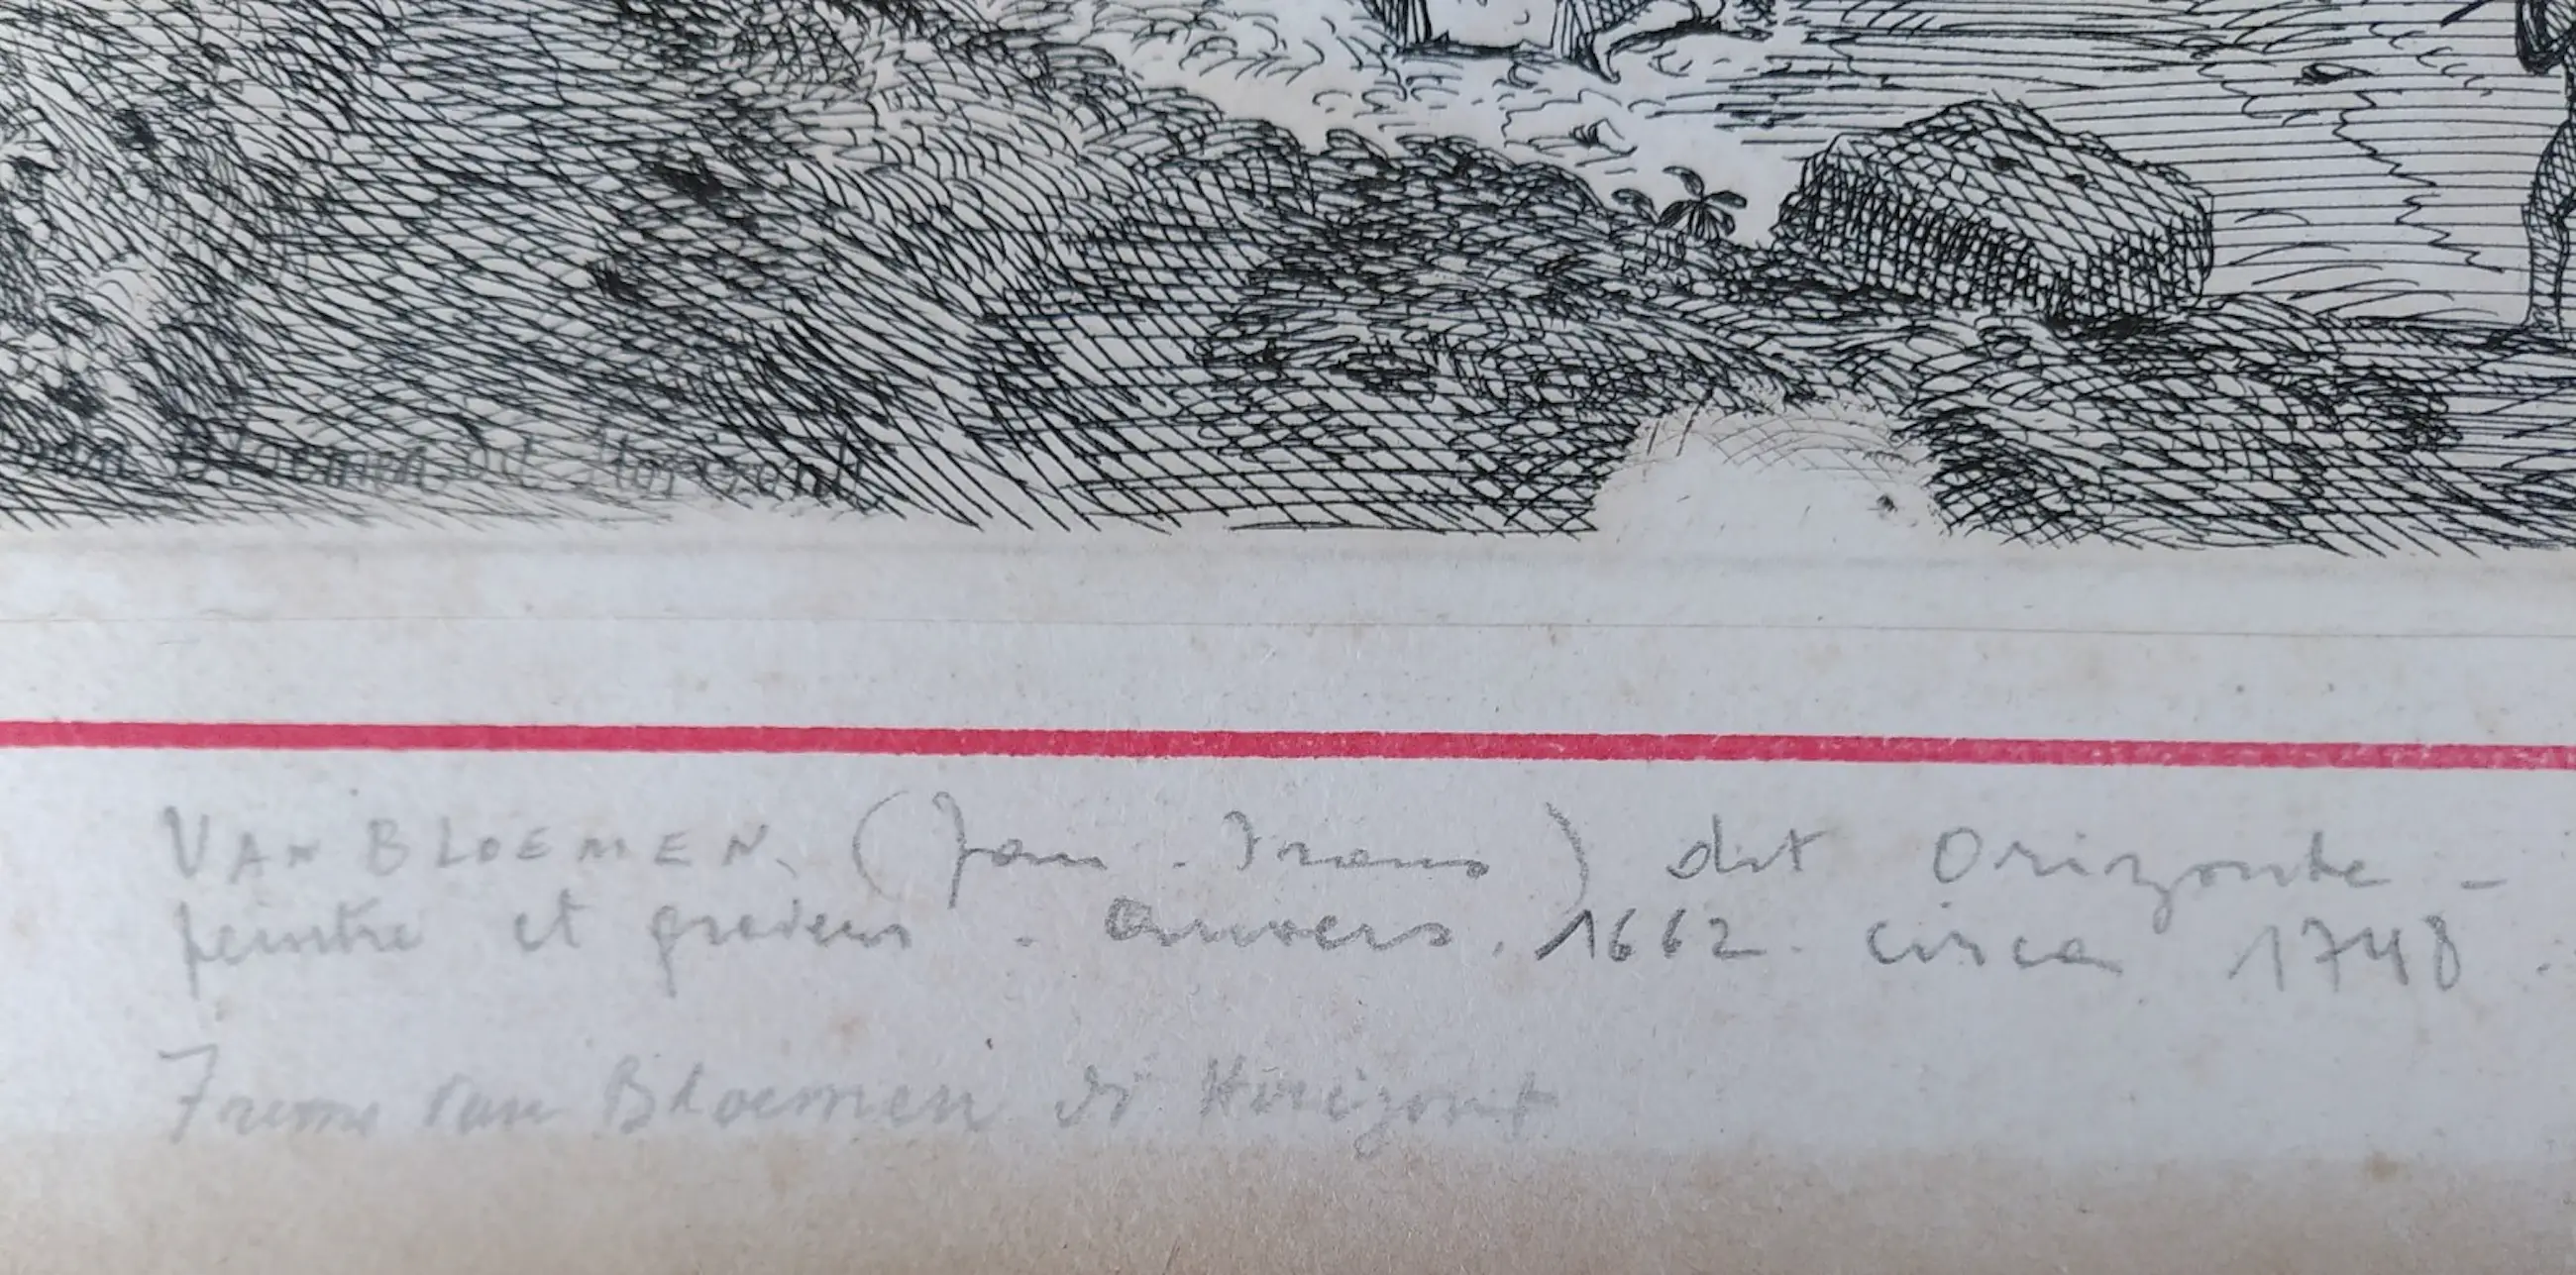 van Bloemen od Horizont
VAN BLOEMEN. (Jan. Frans) dit Orizonte -
peintre et graveur. Anvers. 1662. circa 1748.
van Bloemen di Horizont